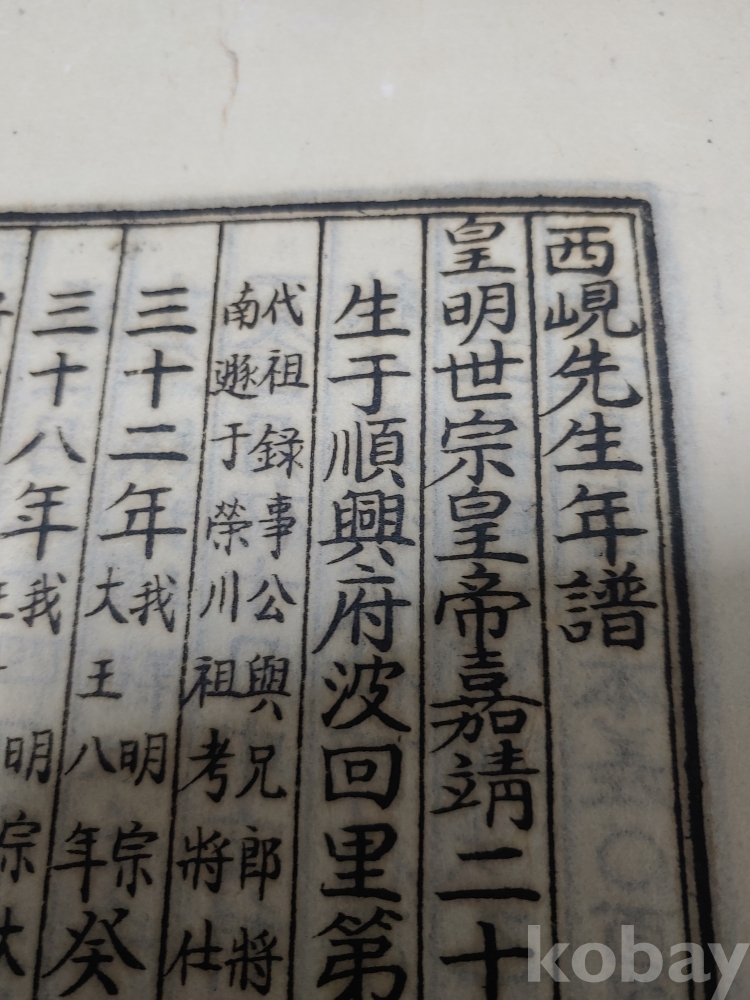 西峴先生年譜
皇明世宗皇帝嘉靖二十
生于順興府波回里第
代祖録事公與兄郎將
南遯于榮川祖考將仕
三十二年
我明宗
大王八年癸
三十八年
我明宗大
kobay